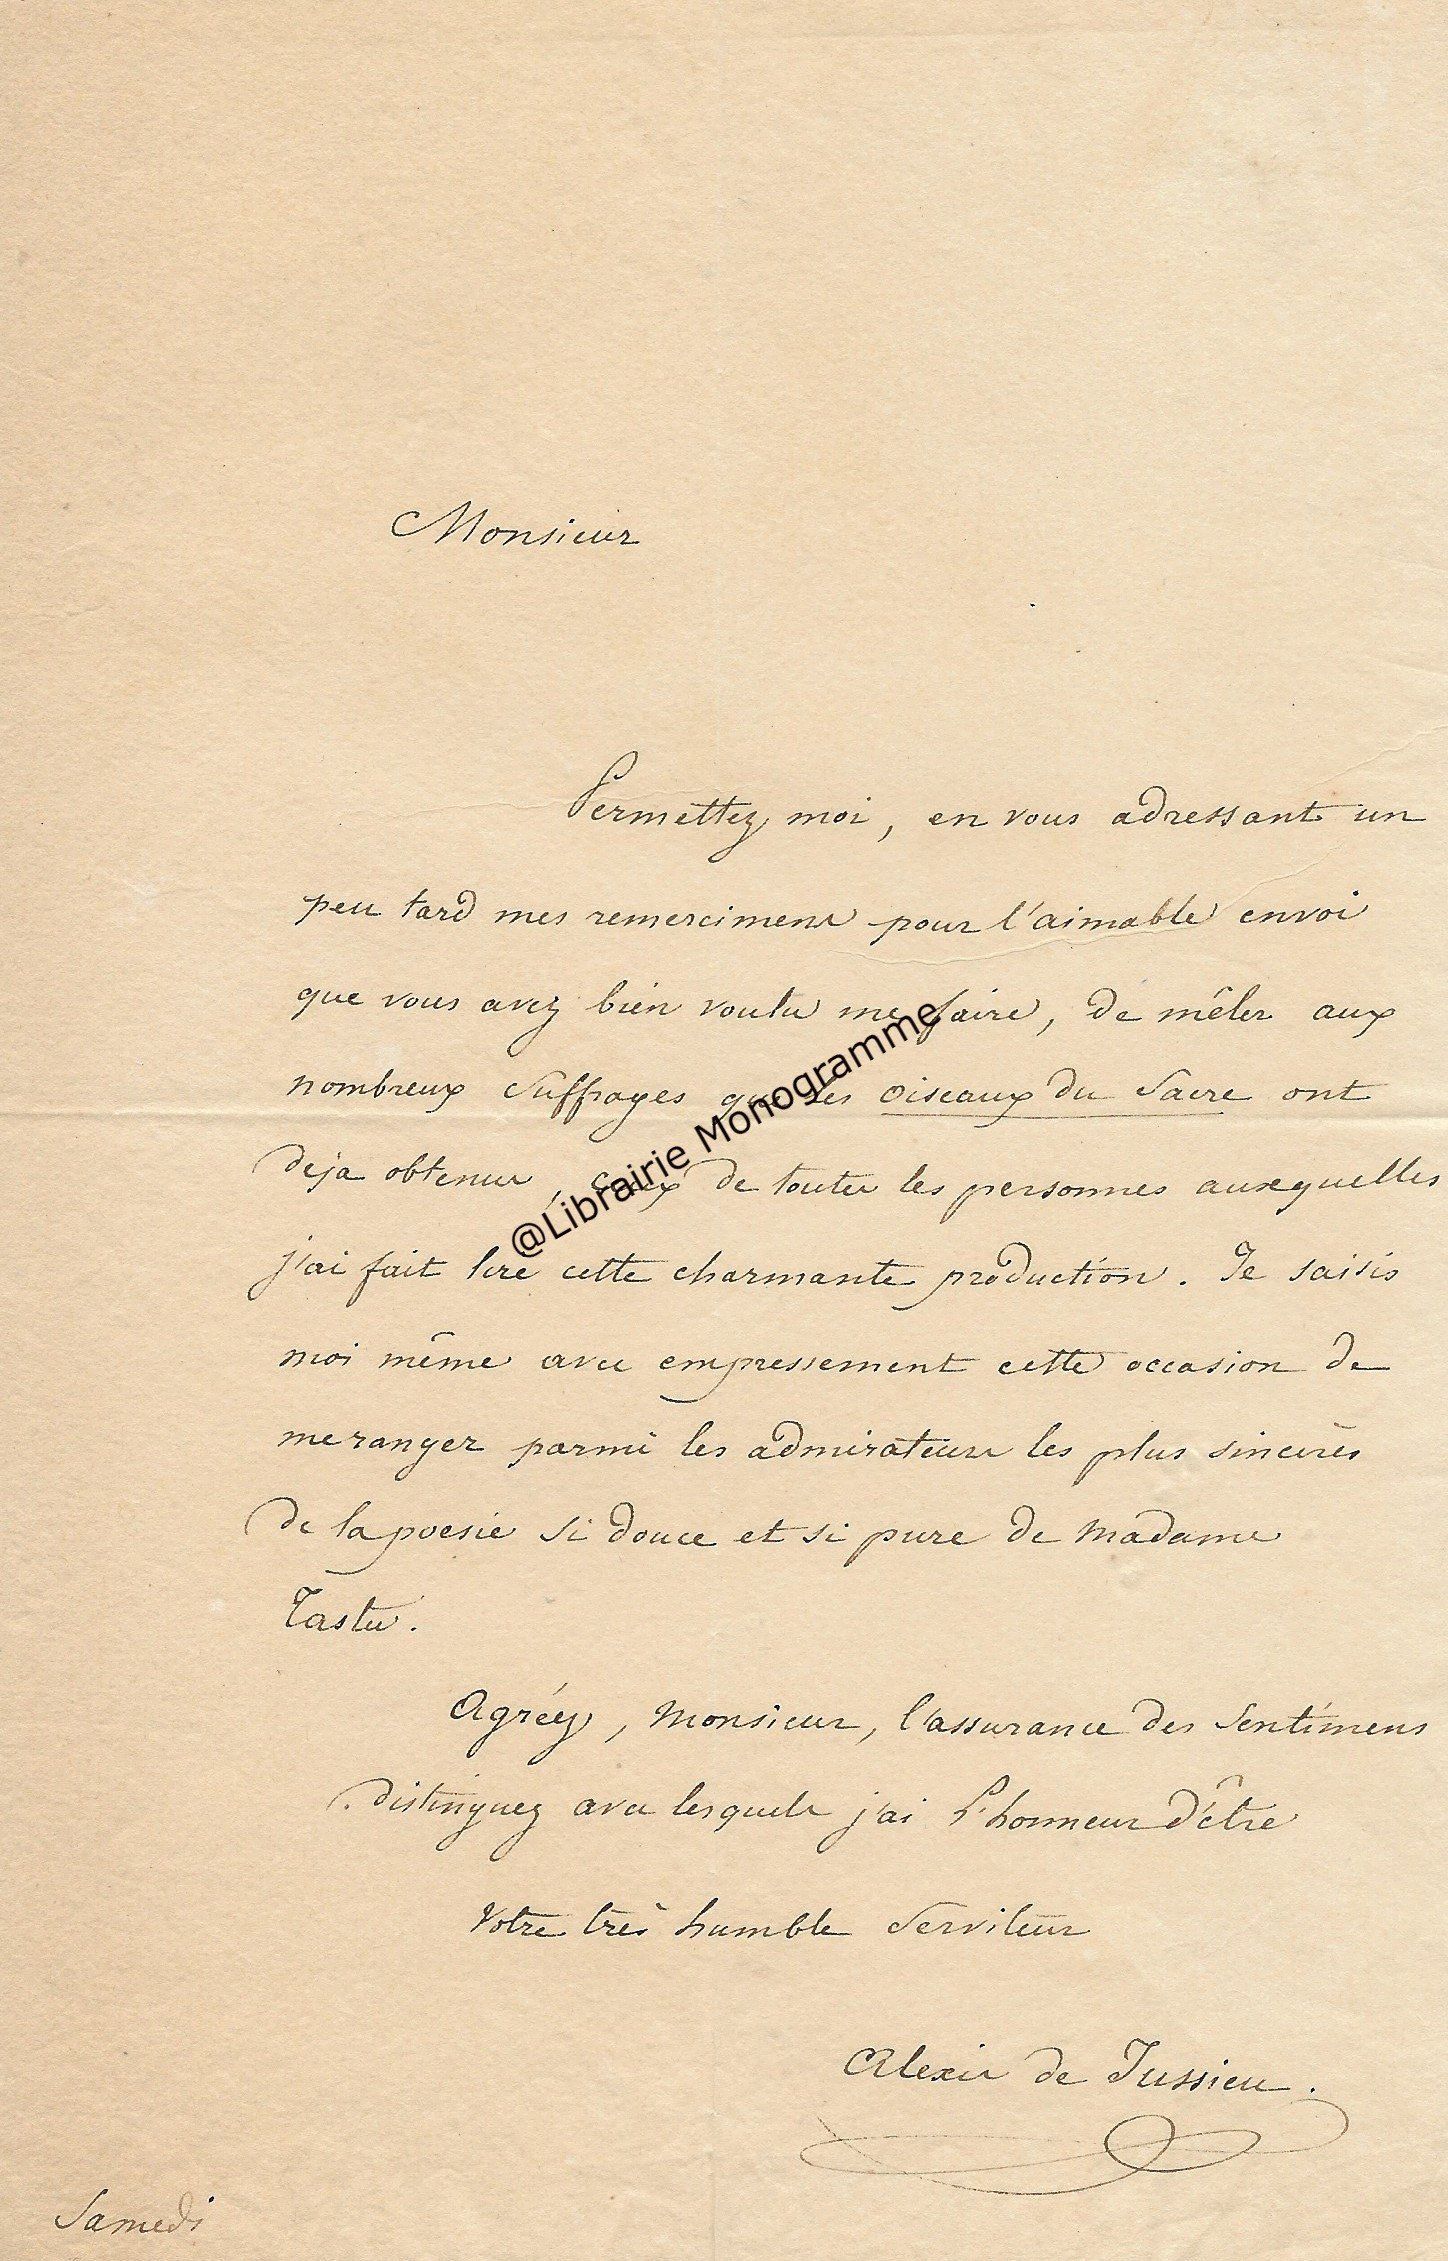 Monsieur
Permettez moi, en vous adressant un
peu tard mes remercimens pour l'aimable envoi
que vous avez bien voulu me faire, de mêler aux
nombreux suffrages que les oiseaux du Sacre ont
deja obtenus, ceux de toutes les personnes auxquelles
j'ai fait lire cette charmante production. Je saisis
moi même avec empressement cette occasion de
me ranger parmi les admirateurs les plus sincères
de la poesie si douce et si pure de Madame
Tastu.
Agréez, Monsieur, l'assurance des sentimens
distinguez avec lesquels j'ai l'honneur d'être
Votre très humble Serviteur
Alexis de Jussieu.
Samedi
@Librairie Monogramme